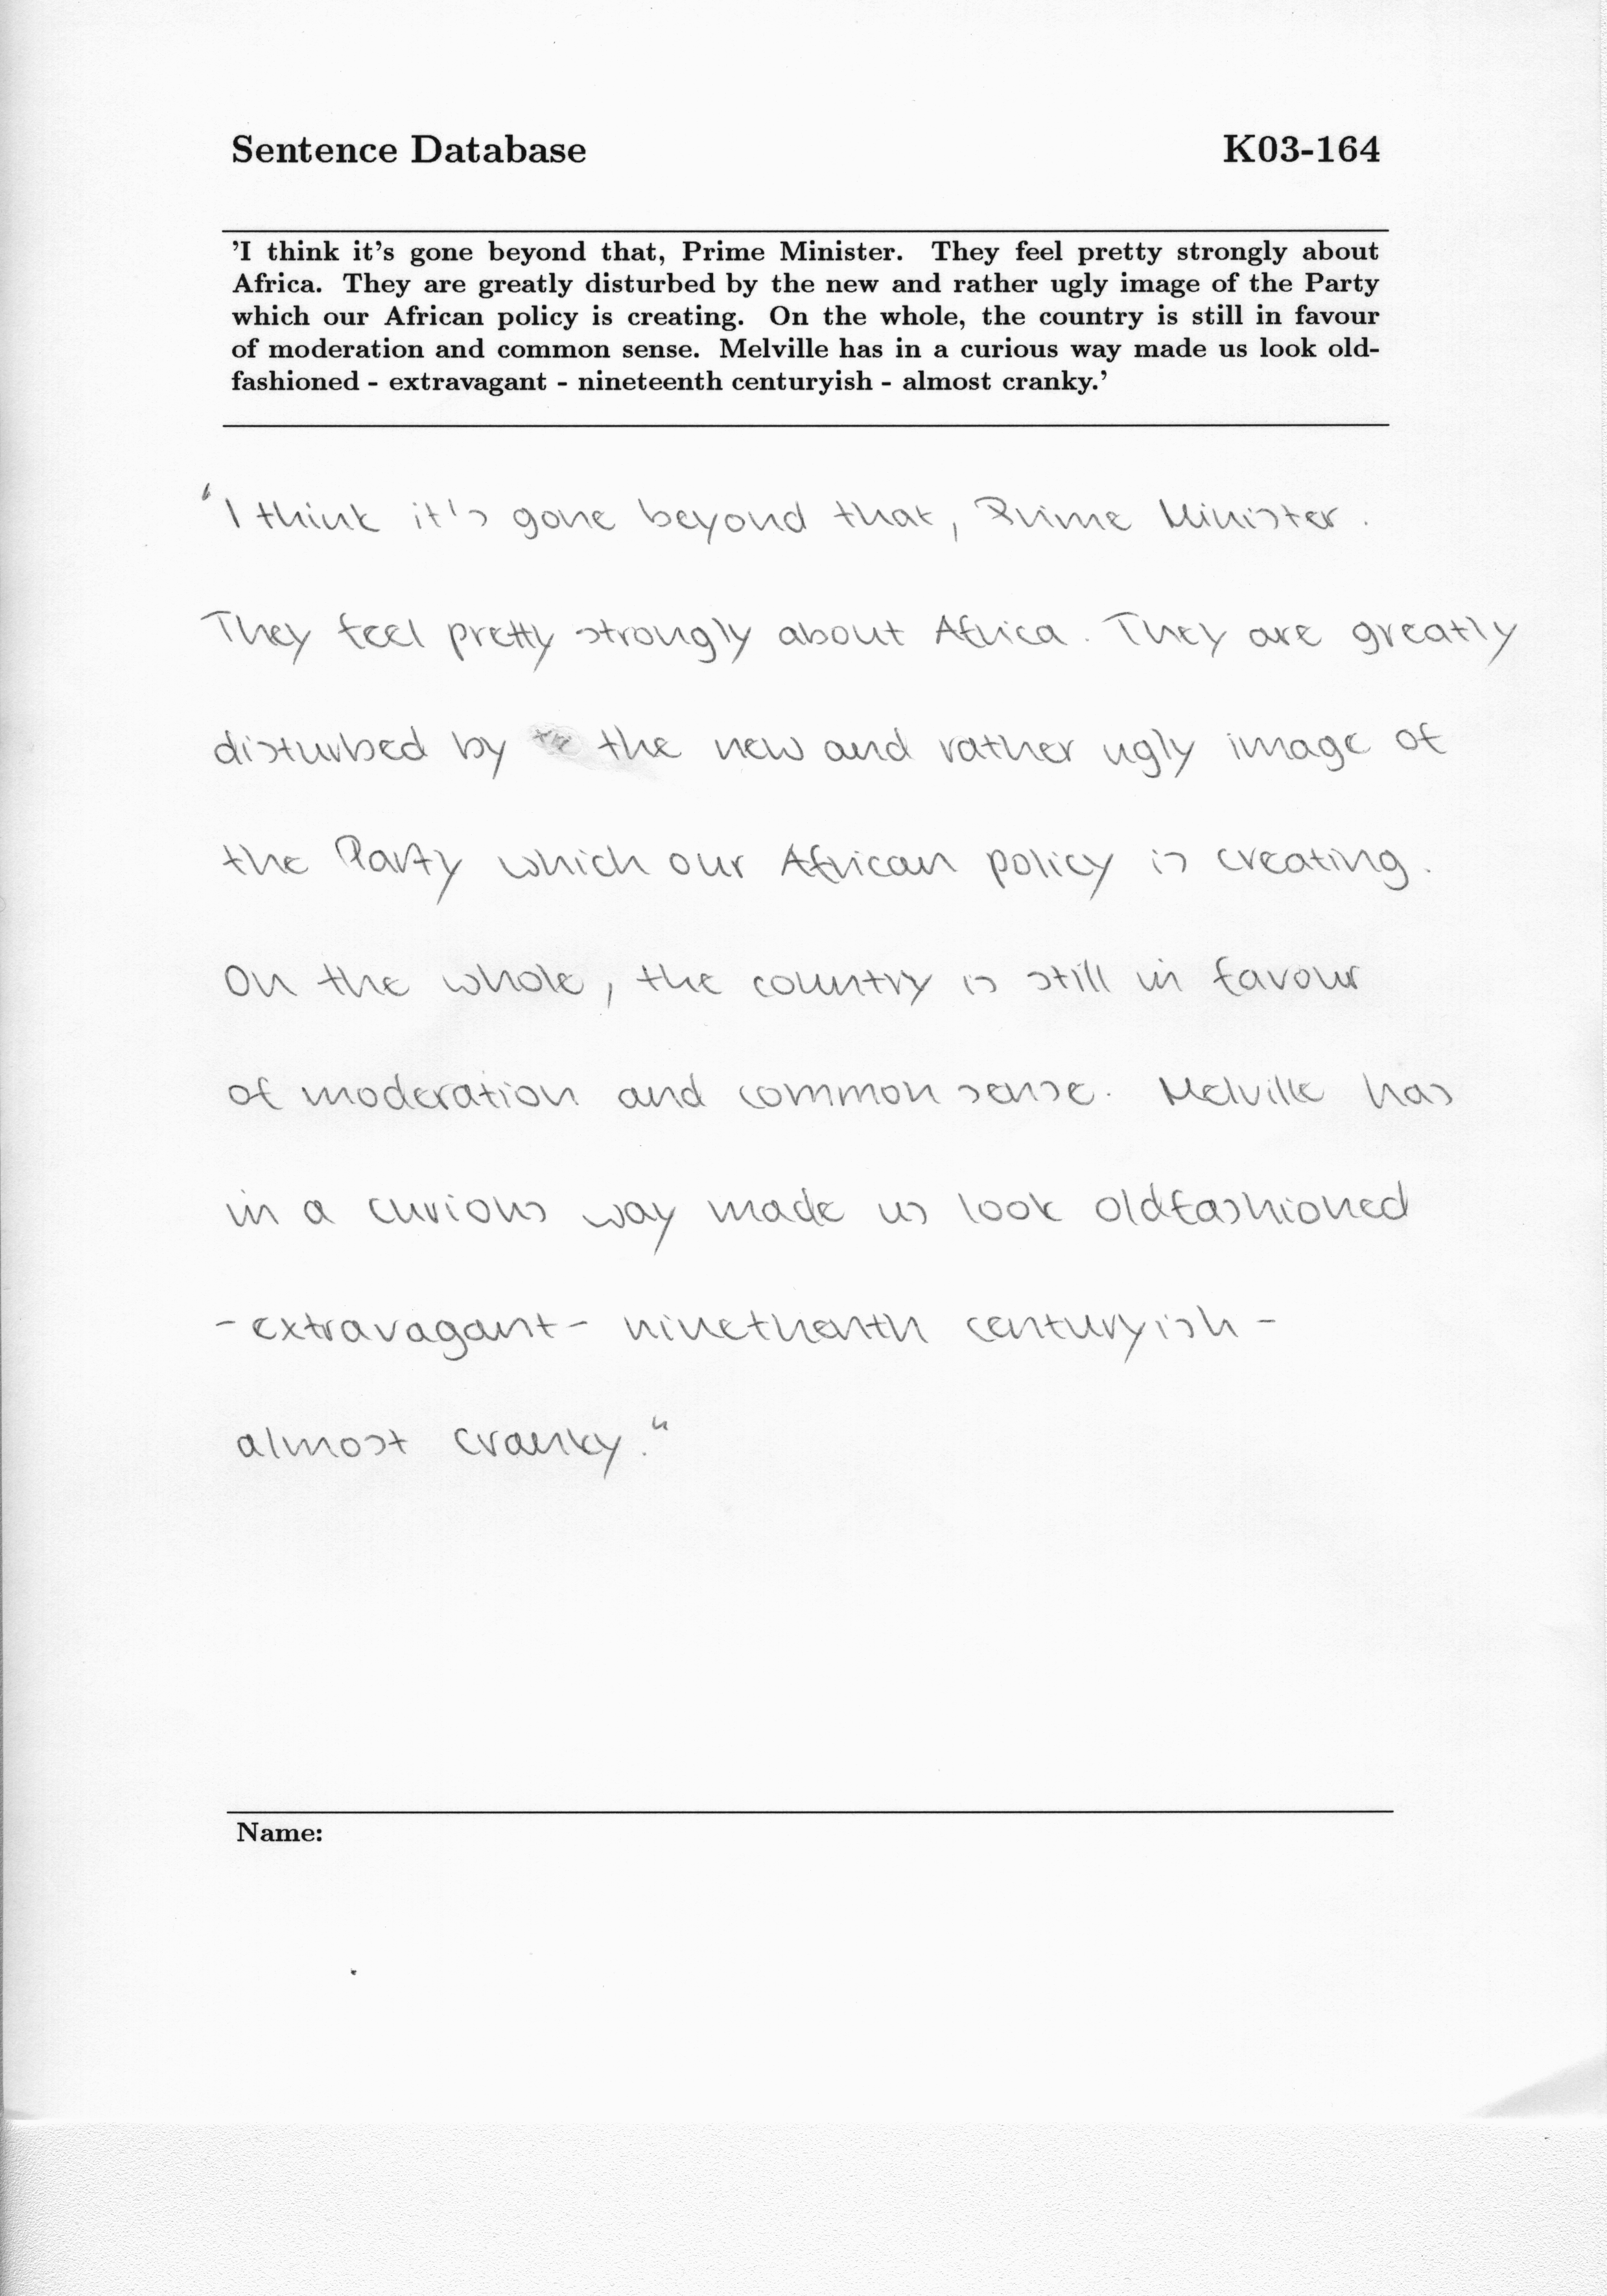 Sentence Database K03-164
’I think it’s gone beyond that, Prime Minister. They feel pretty strongly about
Africa. They are greatly disturbed by the new and rather ugly image of the Party
which our African policy is creating. On the whole, the country is still in favour
of moderation and common sense. Melville has in a curious way made us look old-
fashioned - extravagant - nineteenth centuryish - almost cranky.’
"I think it's gone beyond that, Prime Minister.
They feel pretty strongly about Africa. They are greatly
disturbed by the new and rather ugly image of
the Party which our African policy is creating.
On the whole, the country is still in favour
of moderation and common sense. Melville has
in a curious way made us look oldfashioned
- extravagant - ninetheenth centuryish -
almost cranky."
Name: